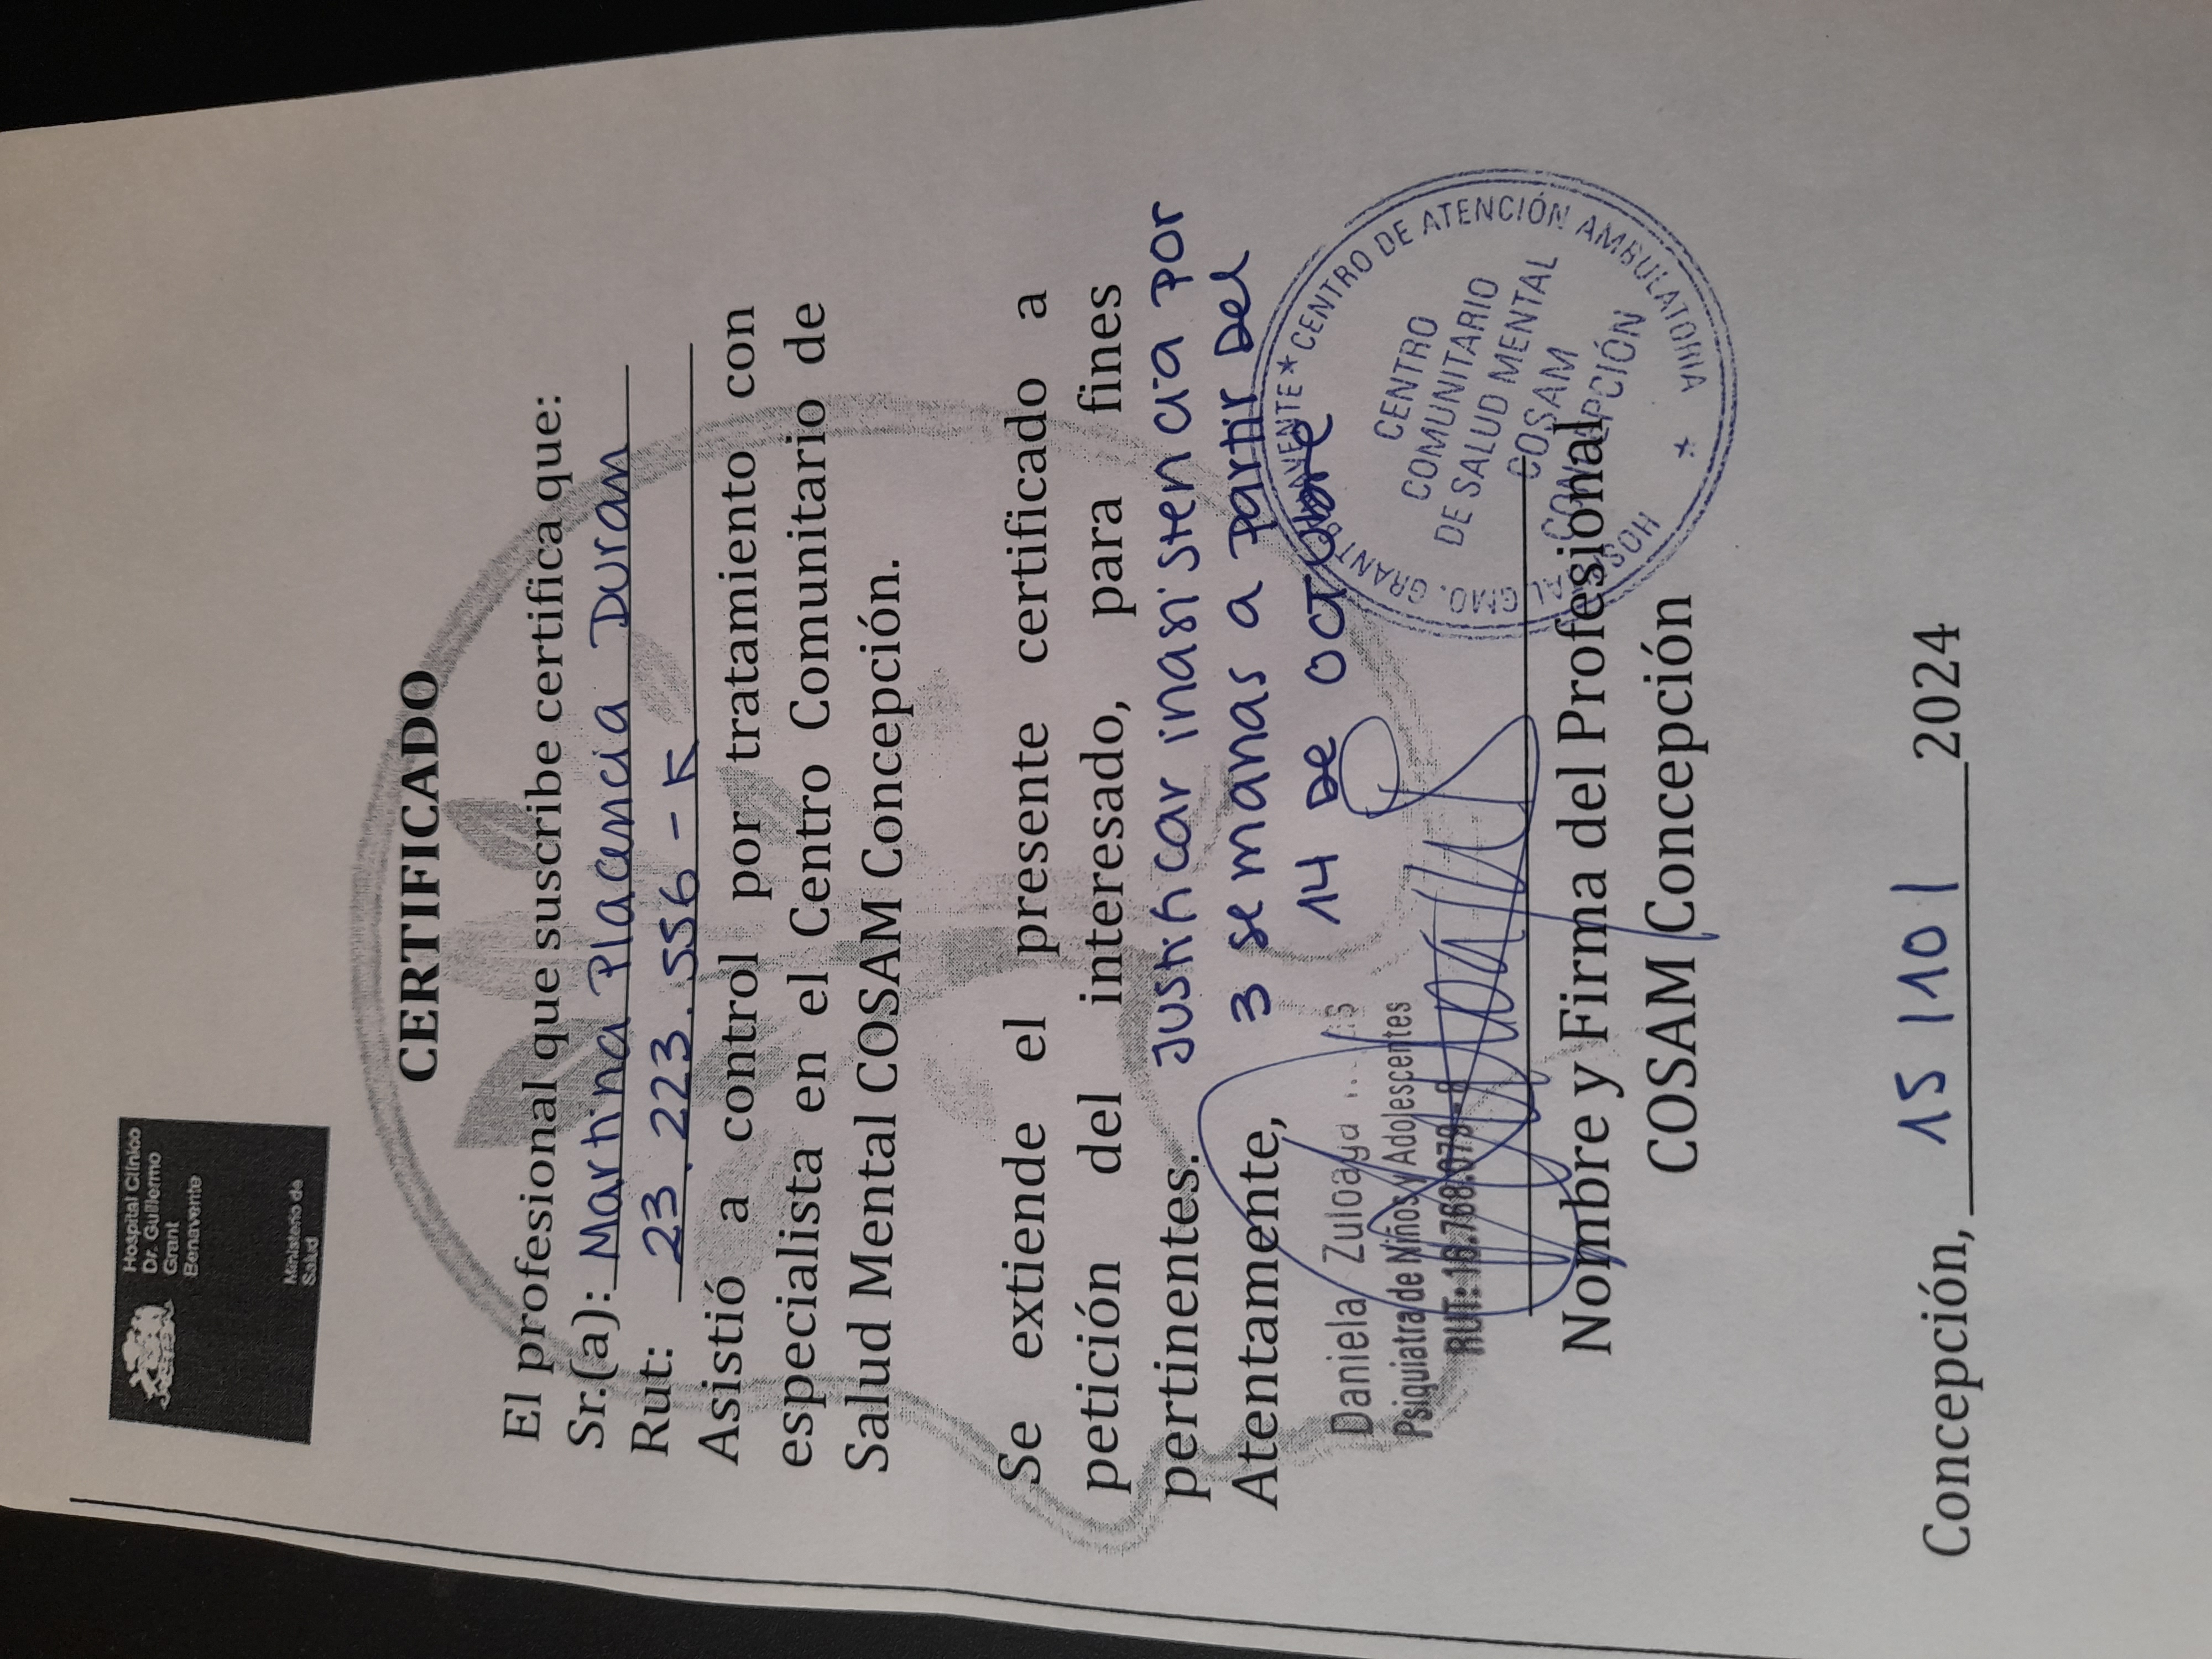 Hospital Clínico
Dr. Guillermo
Grant
Benavente
Ministerio de
Salud
CERTIFICADO
El profesional que suscribe certifica que:
Sr.(a): Martina Placencia Duran
Rut: 23.223.556-K
Asistió a control por tratamiento con
especialista en el Centro Comunitario de
Salud Mental COSAM Concepción.
Se extiende el presente certificado a
petición del interesado, para fines
pertinentes. Justificar inasistencia por
3 semanas a partir del
14 de octubre
Atentamente,
Daniela Zuloaga
Psiquiatra de Niños y Adolescentes
RUT:
HOSPITAL GMO. GRANT BENAVENTE * CENTRO DE ATENCIÓN AMBULATORIA *
CENTRO
COMUNITARIO
DE SALUD MENTAL
COSAM
CONCEPCIÓN
Nombre y Firma del Profesional
COSAM Concepción
Concepción, 15/10/ 2024